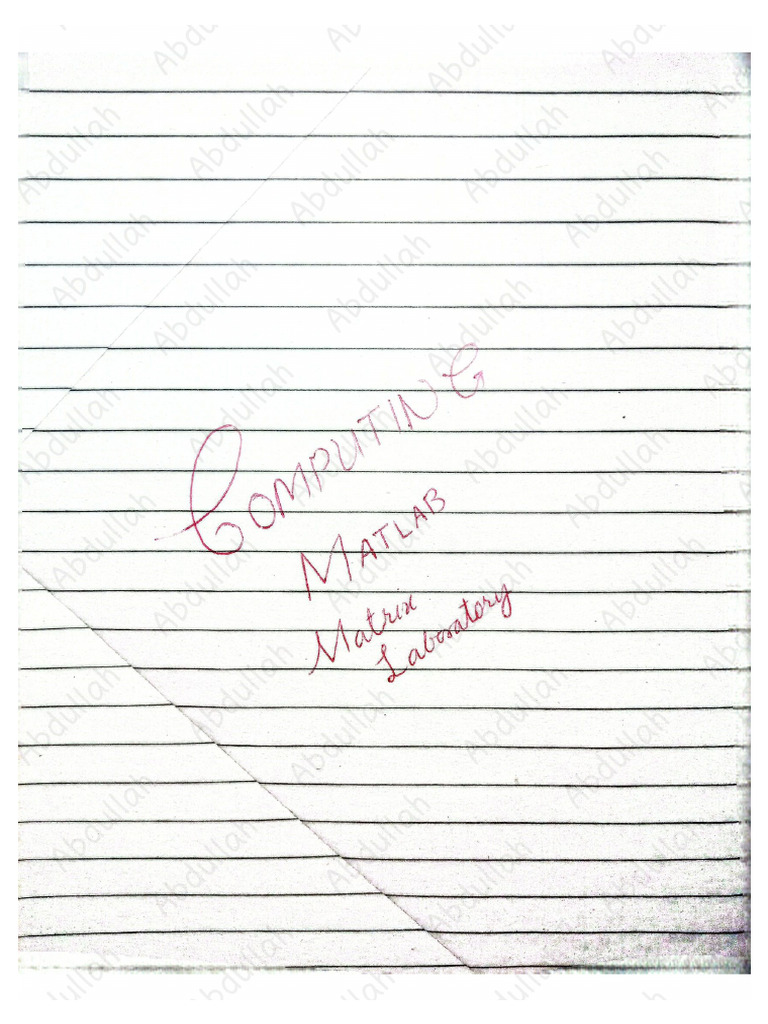 COMPUTING
MATLAB
Matrix
Laboratory
Abdullah